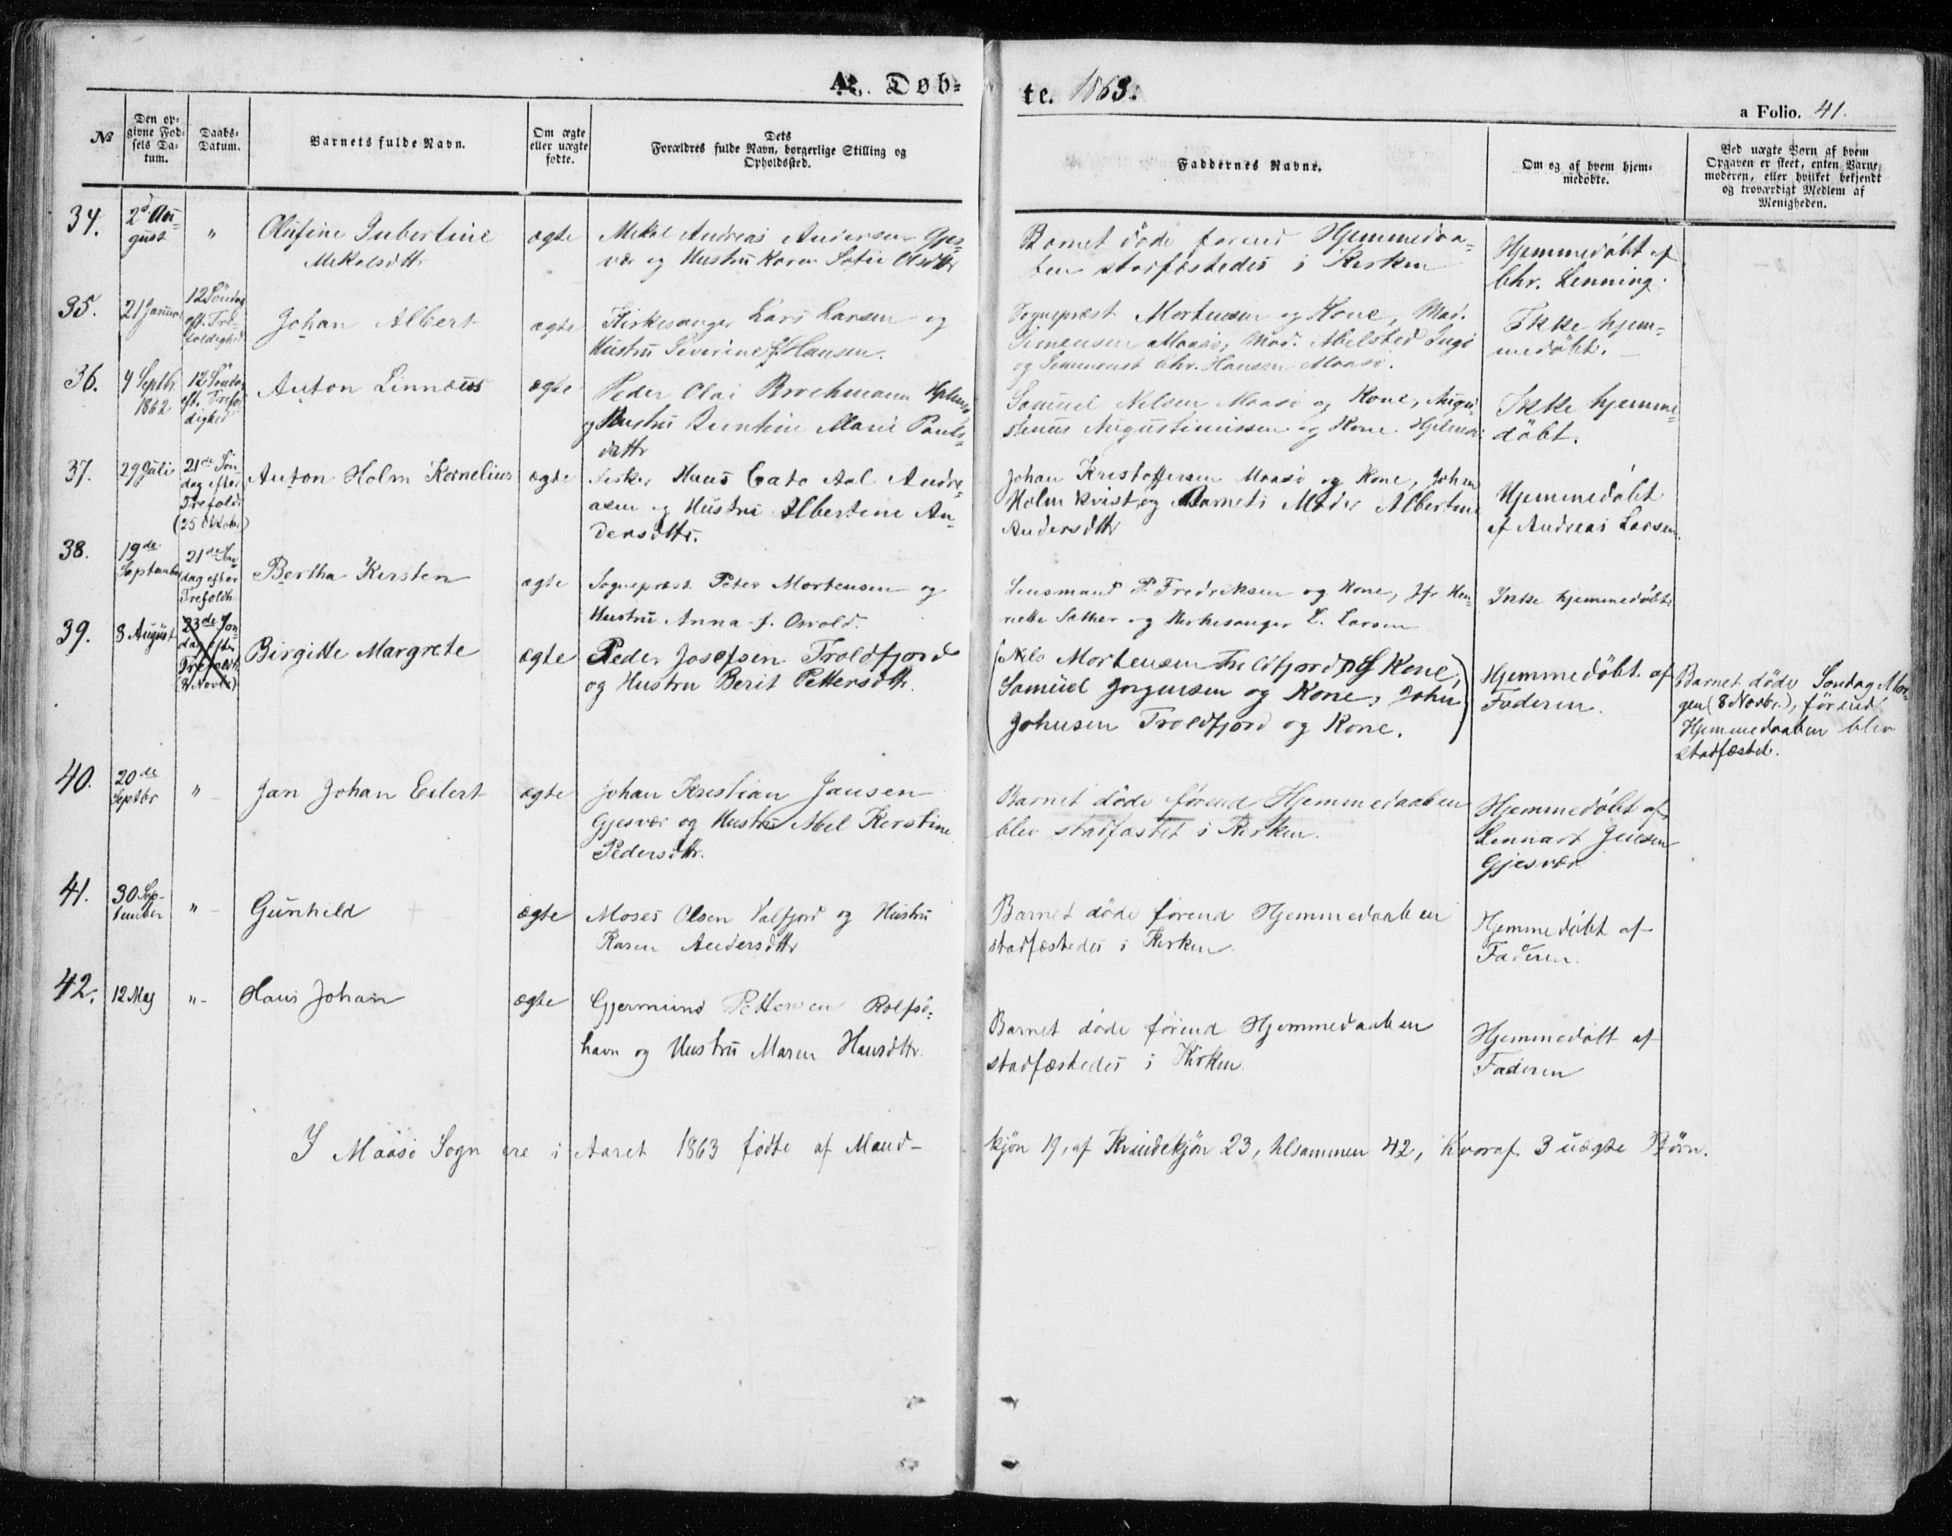 A. Døb-
te. 1863.
a Folio. 41.
No
Den op-
givne Fød-
sels Da-
tum.
Daabs-
Datum.
Barnets fulde Navn.
Om ægte
eller uægte
fødte.
Dets
Forældres fulde Navn, borgerlige Stilling og
Opholdssted.
Faddernes Navne.
Om og af hvem hjem-
medøbte.
Ved uægte Børn af hvem
Opgaven er skeet, enten Barne-
moderen, eller hvilket bekjendt
og troværdigt Medlem af
Menigheden.
34.
2d Au-
gust
"
Olufine Jubertine
Mekalsdttr
ægte
Mekal Andreas Andersen Gjes-
vær og Hustru Karen Sofie Olsdttr
Barnet døde førend Hjemmedaa-
ben stadfæstedes i Kirken
Hjemmedøbt af
Chr. Lenning.
35.
21 Januar
12 Søndag
eft. Tre-
foldighed
Johan Albert
ægte
Kirkesanger Lars Larsen og
Hustru Severine f. Hansen.
Sognepræst Mortensen og Kone, Mad.
Simensen Maasø, Mad. Abelsted Ingø
og Chr. Hansen Maasø.
Ikke hjem-
medøbt.
36.
4 Septbr
1862
12 Søndag
eft. Trefol-
dighed
Anton Linnæus
ægte
Peder Olai Brochmann Hjelmsø
og Hustru Quintine Marie Pauls-
dattr
Samuel Nilsen Maasø og Kone, Augu-
stinus Augustinussen og Kone Hjelmsø
Ikke hjemme-
døbt.
37.
29 Juli
21de Søn-
dag efter
Trefold:
(25 Oktbr)
Anton Holm Kornelius
ægte
Fisker Hans Cato Aal Andre-
asen og Hustru Albertine An-
dersdttr.
Johan Kristoffersen Maasø og Kone, Johan
Holm Kvist og Barnets Moder Albertine
Andersdttr
Hjemmedøbt
af Andreas Larsen.
38.
19de
September
21de Søn-
dag efter
Trefoldh
Bertha Kirsten
ægte
Sognepræst Peter Mortensen og
Hustru Anna f. Osvold.
Lensmand P. Fredriksen og Kone, Jfr Hen-
riette Sather og Kirkesanger L. Larsen
Ikke hjemmedøbt.
39.
8 August
23de Søn-
dag efter
Trefoldh.
(8 Novbr)
Birgitte Margrete
ægte
Peder Josefsen Troldfjord
og Hustru Berit Pettersdttr.
(Nils Mortensen Troldfjord og Kone,
Samuel Jørgensen og Kone, John
Johnsen Troldfjord og Kone.)
Hjemmedøbt af
Faderen.
Barnet døde Søndag Mor-
gen (8 Novbr), førend
Hjemmedaaben blev
stadfæstet.
40.
20de
Septbr
"
Jan Johan Eilert
ægte
Johan Kristian Jansen
Gjesvær og Hustru Abel Kirstine
Pedersdttr.
Barnet døde førend Hjemmedaaben
blev stadfæstet i Kirken.
Hjemmedøbt af
Lennart Jensen
Gjesvær
41.
30 Sep-
tember
"
Gunhild
ægte
Moses Olsen Valfjord og Hustru
Karen Andersdttr
Barnet døde førend Hjemmedaaben
stadfæstedes i Kirken.
Hjemmedøbt af
Faderen.
42.
12 Maj
"
Hans Johan
ægte
Gjermund Pettersen Rolfsø-
havn og Hustru Maren Hansdttr.
Barnet døde førend Hjemmedaaben
stadfæstedes i Kirken.
Hjemmedøbt af
Faderen
I Maasø Sogn ere i Aaret 1863 fødte af Mand-
kjøn 19, af Kvindekjøn 23, tilsammen 42, hvoraf 3 uægte Børn.